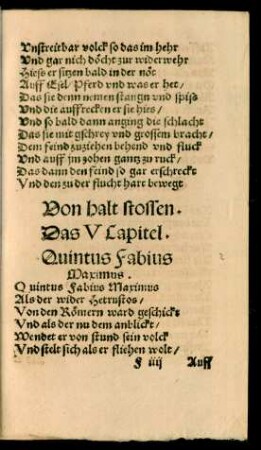 Vnstreitbar volck so das im hehr
Vnd gar nich döcht zur widerwehr
Hiess er sitzen bald in der nöt
Auff Esel/ Pferd vnd was er het/
Das sie denn nemen stangn vnd spiss
Vnd die auffrecken er sie hies/
Vnd so bald dann anging die schlacht
Das sie mit gschrey vnd grossem bracht/
Dem feind zuziehen behend vnd fluck
Vnd auff im zohen gantz zu ruck/
Das dann den feind so gar erschreckt
Vnd den zu der flucht hart bewegt
Von halt stossen.
Das V Capitel.
Quintus Fabius
Maximus.
Quintus Fabius Maximus
Als der wider Hetrustos/
Von den Römern ward geschickt
Vnd als der nu dem anblickt/
Wendet er von stund sein volck
Vnd stelt sich als er fliehen wolt/
F iiij Auff